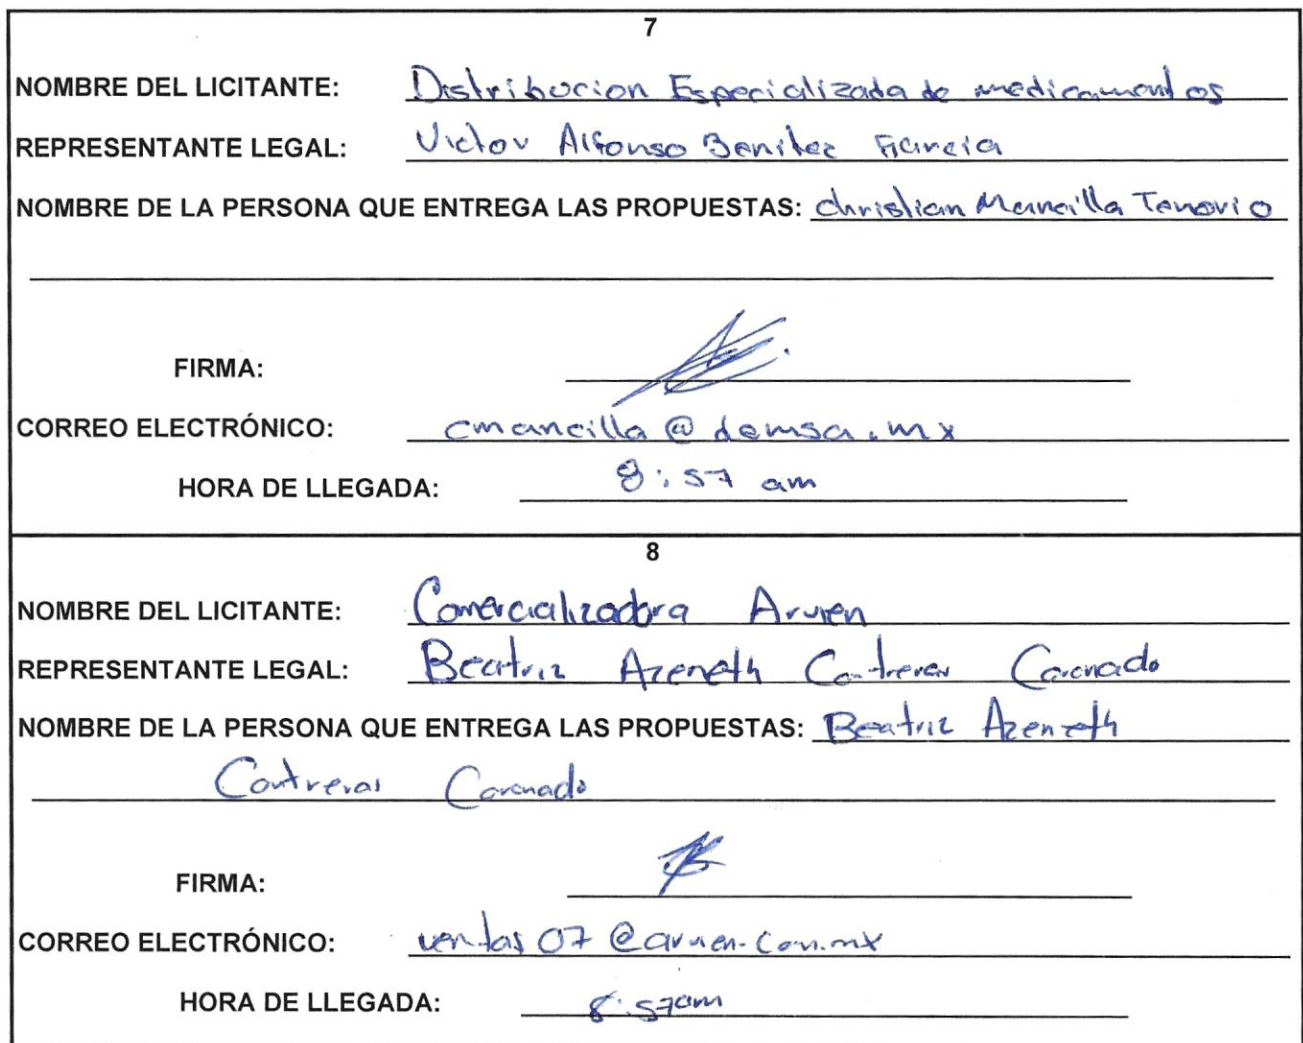 7
NOMBRE DEL LICITANTE: Distribucion Especializada de medicamentos
REPRESENTANTE LEGAL: Victor Alfonso Benitez Garcia
NOMBRE DE LA PERSONA QUE ENTREGA LAS PROPUESTAS: christian Mancilla Tenorio
FIRMA:
CORREO ELECTRÓNICO: cmancilla@demsa.mx
HORA DE LLEGADA: 8:57 am
8
NOMBRE DEL LICITANTE: Comercializadora Arvien
REPRESENTANTE LEGAL: Beatriz Azeneth Contreras Coronado
NOMBRE DE LA PERSONA QUE ENTREGA LAS PROPUESTAS: Beatriz Azeneth
Contreras Coronado
FIRMA:
CORREO ELECTRÓNICO: ventas07@arvien.com.mx
HORA DE LLEGADA: 8:57am